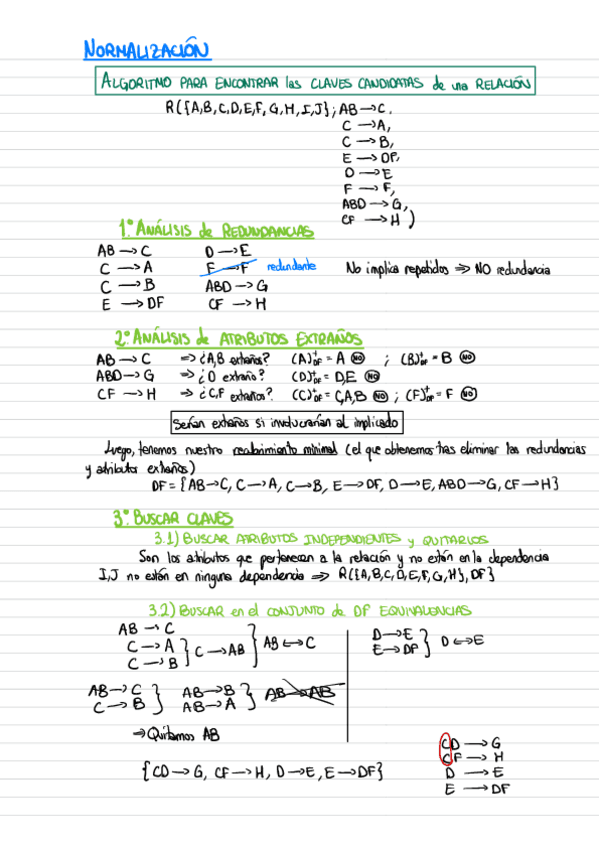 NORMALIZACIÓN
ALGORITMO PARA ENCONTRAR las CLAVES CANDIDATAS de una RELACIÓN
R({A,B,C,D,E,F,G,H,I,J}; AB → C,
C → A,
C → B,
E → DF,
D → E
F → F,
ABD → G,
CF → H)
1.º ANÁLISIS de REDUNDANCIAS
AB → C D → E
C → A F → F redundante No implica repetidos ⇒ NO redundancia
C → B ABD → G
E → DF CF → H
2.º ANÁLISIS de ATRIBUTOS EXTRAÑOS
AB → C ⇒ ¿A,B extraños? (A)⁺DF = A NO ; (B)⁺DF = B NO
ABD → G ⇒ ¿D extraño? (D)⁺DF = D,E NO
CF → H ⇒ ¿C,F extraños? (C)⁺DF = C,A,B NO ; (F)⁺DF = F NO
Serían extraños si involucrarían al implicado
Luego, tenemos nuestro recubrimiento minimal (el que obtenemos tras eliminar las redundancias
y atributos extraños)
DF = {AB→C, C→A, C→B, E→DF, D→E, ABD→G, CF→H}
3.º BUSCAR CLAVES
3.1) BUSCAR ATRIBUTOS INDEPENDIENTES y QUITARLOS
Son los atributos que pertenecen a la relación y no están en la dependencia
I,J no están en ninguna dependencia ⇒ R({A,B,C,D,E,F,G,H}, DF}
3.2) BUSCAR en el CONJUNTO de DF EQUIVALENCIAS
AB → C
C → A } C → AB } AB ↔ C
C → B
D → E
E → DF } D ↔ E
AB → C } AB → B } AB → AB
C → B AB → A
⇒ Quitamos AB
{CD → G, CF → H, D → E, E → DF}
CD → G
CF → H
D → E
E → DF